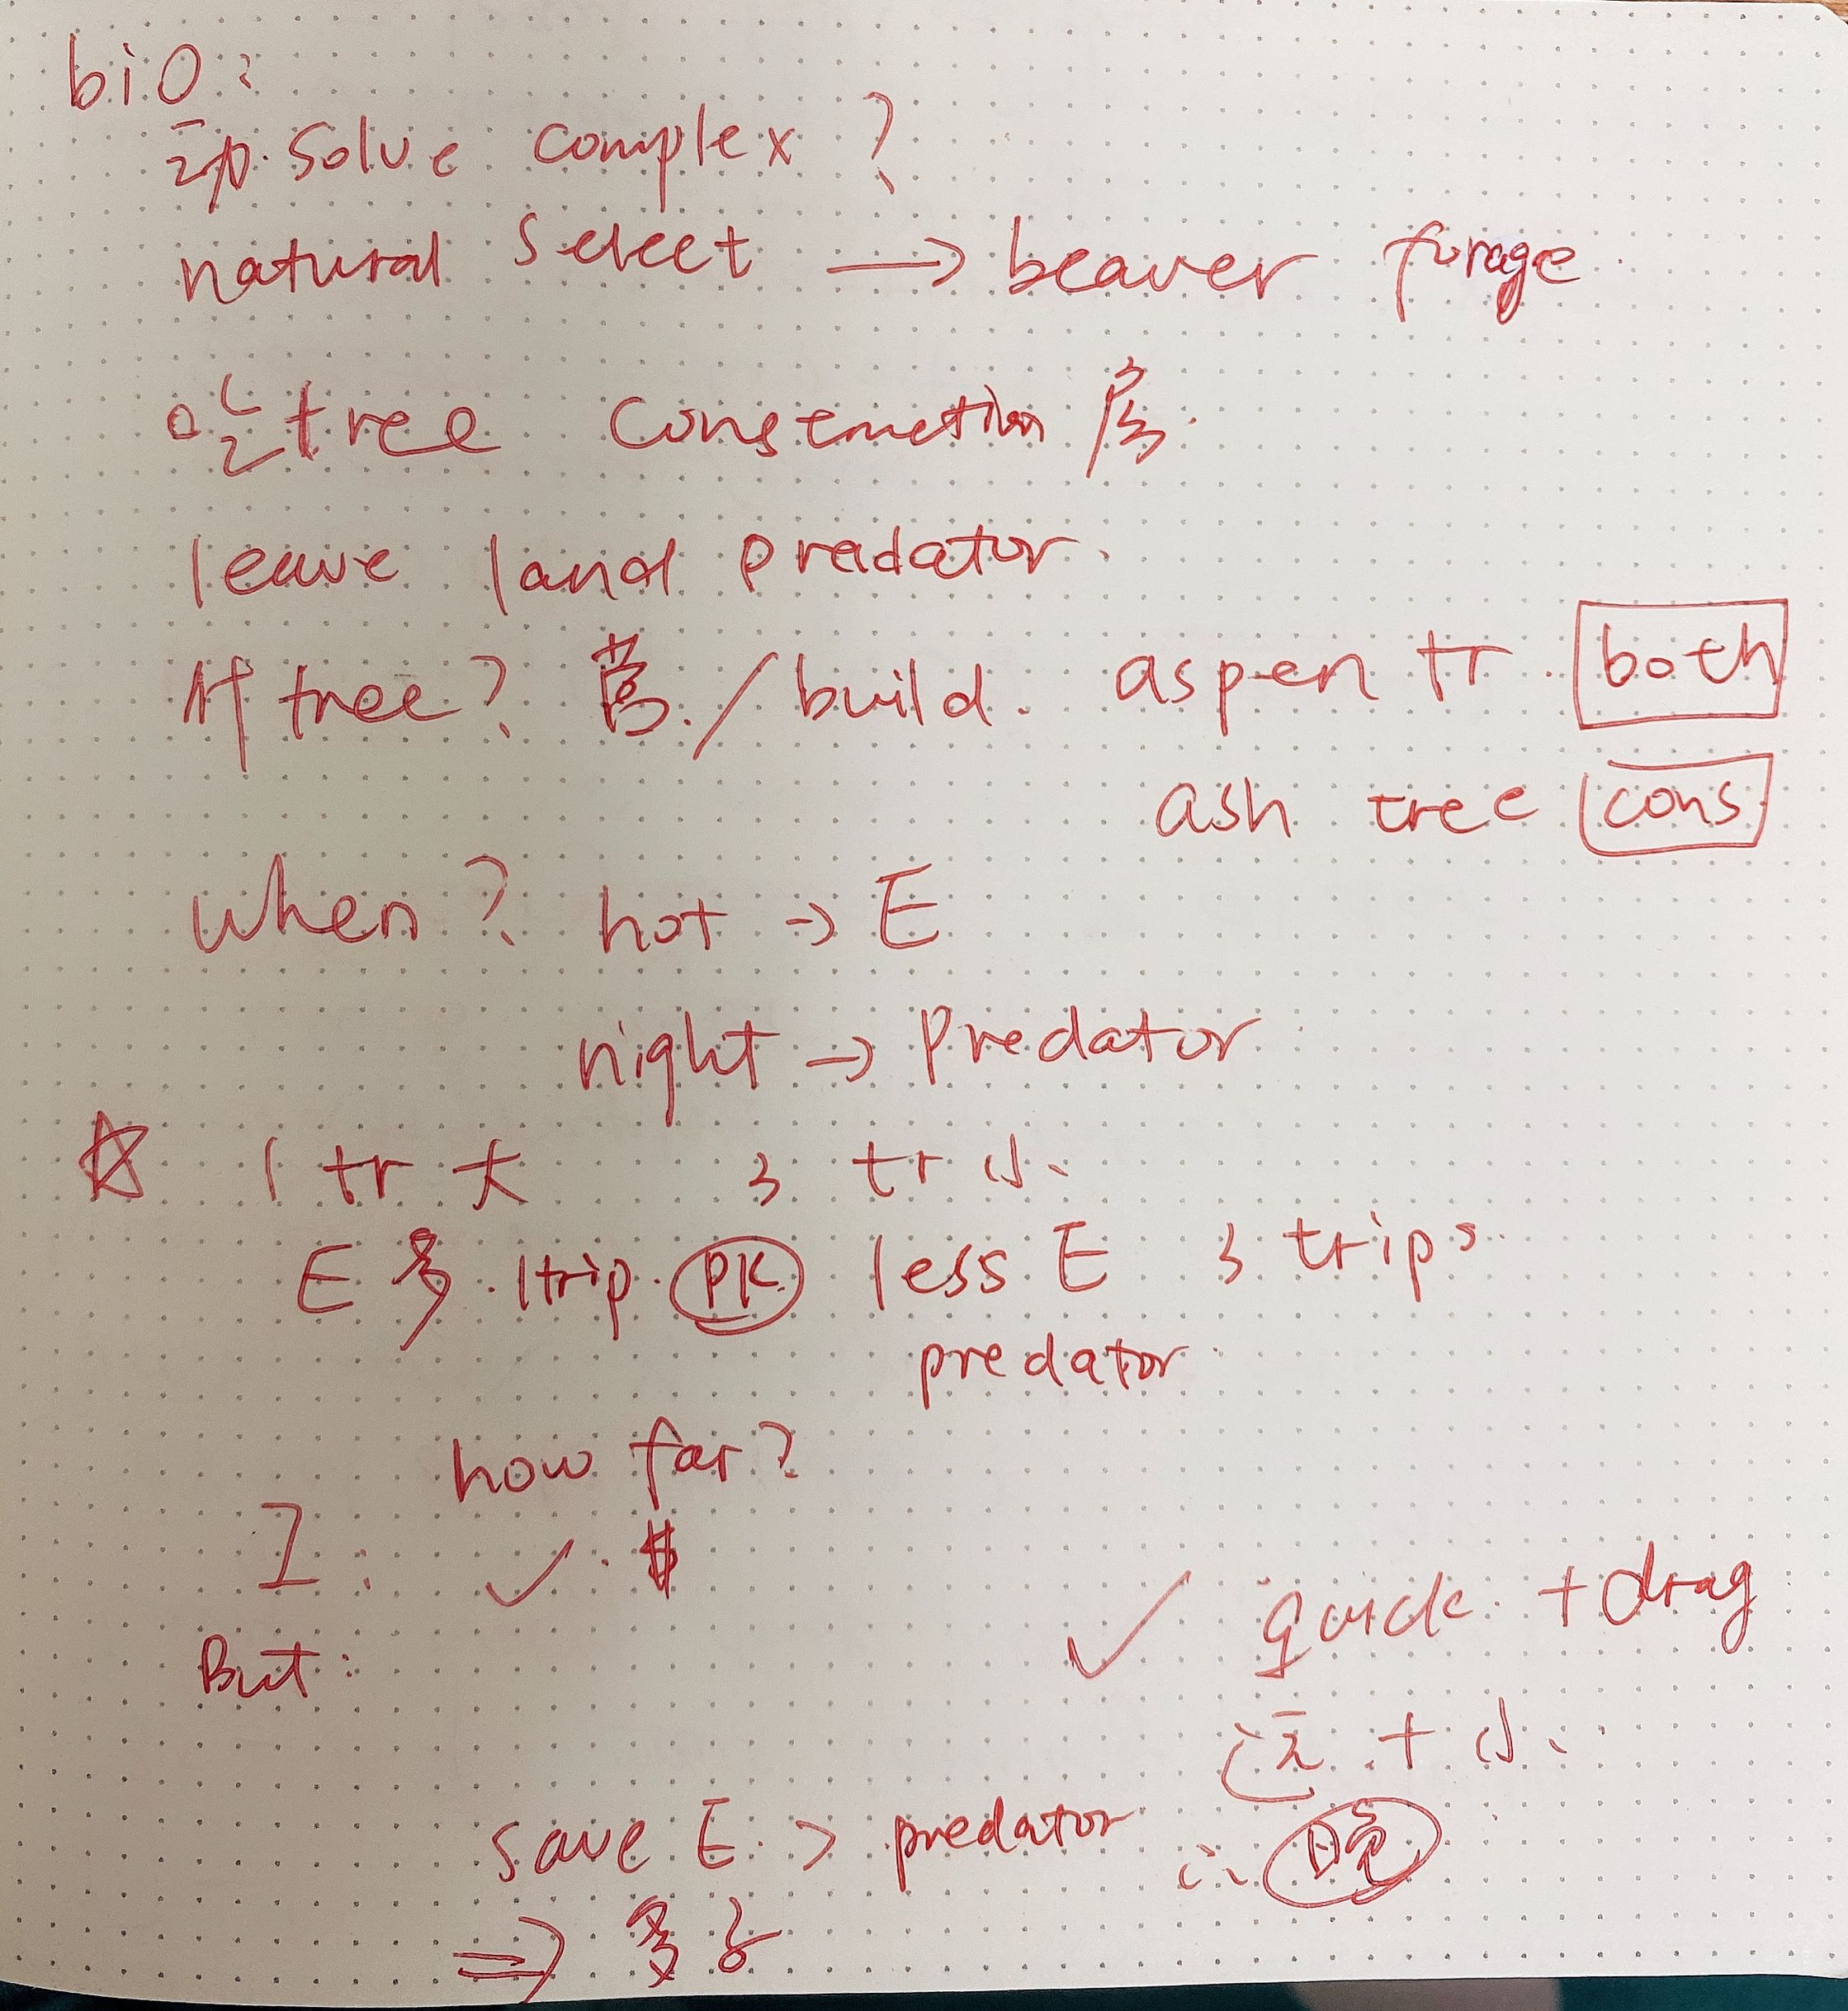 bio:
动 solve complex ?
natural select → beaver forage
吃 tree construction 房
leave land predator
什 tree? / build. aspen tr. both
ash tree cons
when ? hot → E
night → predator
☆ 1 tr 大 3 tr 小
E 多 1trip. PK less E 3 trips
predator
how far?
I : ✓ $
But: ✓ quick + drag
远 + 小
save E > predator ∴ 晚
⇒ 多